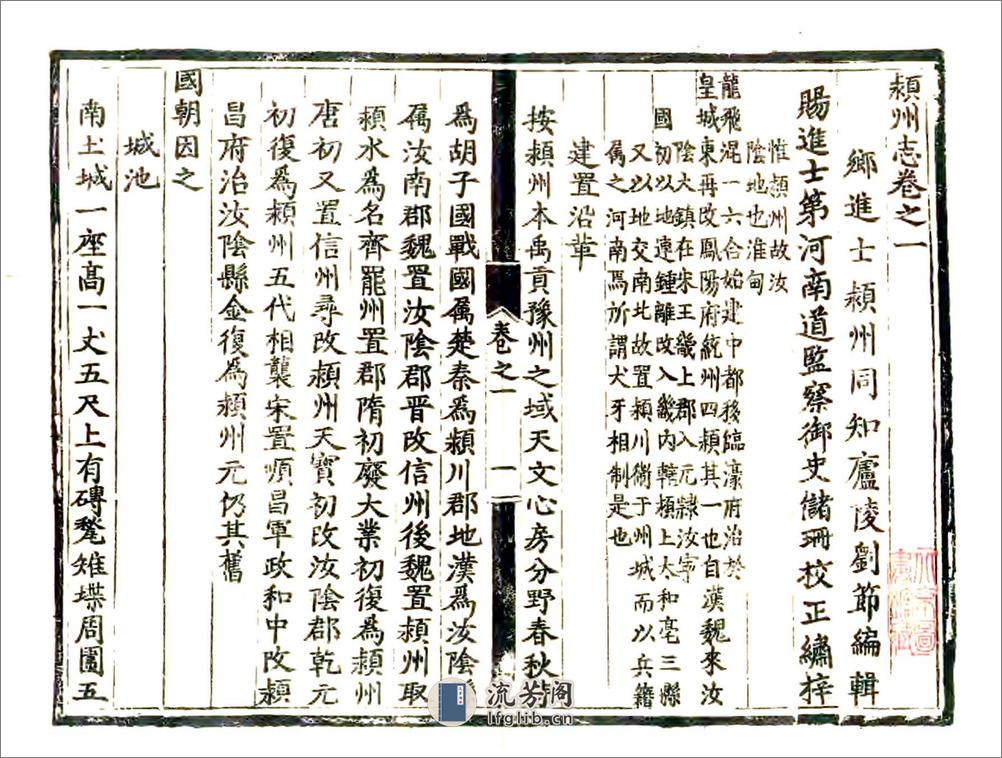 潁州志卷之一
鄉進士潁州同知廬陵劉節編輯
賜進士第河南道監察御史儲珊校正繡梓
惟潁州故汝
陰地也淮甸
龍飛混一六合始建中都移臨濠府治於
皇城東再改鳳陽府統州四潁其一也自漢魏來汝
陰大鎮在宋王畿上郡入元隸汝寧
國初以地連鍾離改入畿內轄潁上太和亳三縣
又以地交南北故置潁川衛于州城而以兵籍
屬之河南焉所謂犬牙相制是也
建置沿革
按潁州本禹貢豫州之域天文心房分野春秋時
為胡子國戰國屬楚秦為潁川郡地漢為汝陰
屬汝南郡魏置汝陰郡晉改信州後魏置潁州取
潁水為名齊罷州置郡隋初廢大業初復為潁州
唐初又置信州尋改潁州天寶初改汝陰郡乾元
初復為潁州五代相襲宋置順昌軍政和中改潁
昌府治汝陰縣金復為潁州元仍其舊
國朝因之
城池
南土城一座高一丈五尺上有磚甃雉堞周圍五
卷之一
一
流芳阁
lfglib.cn